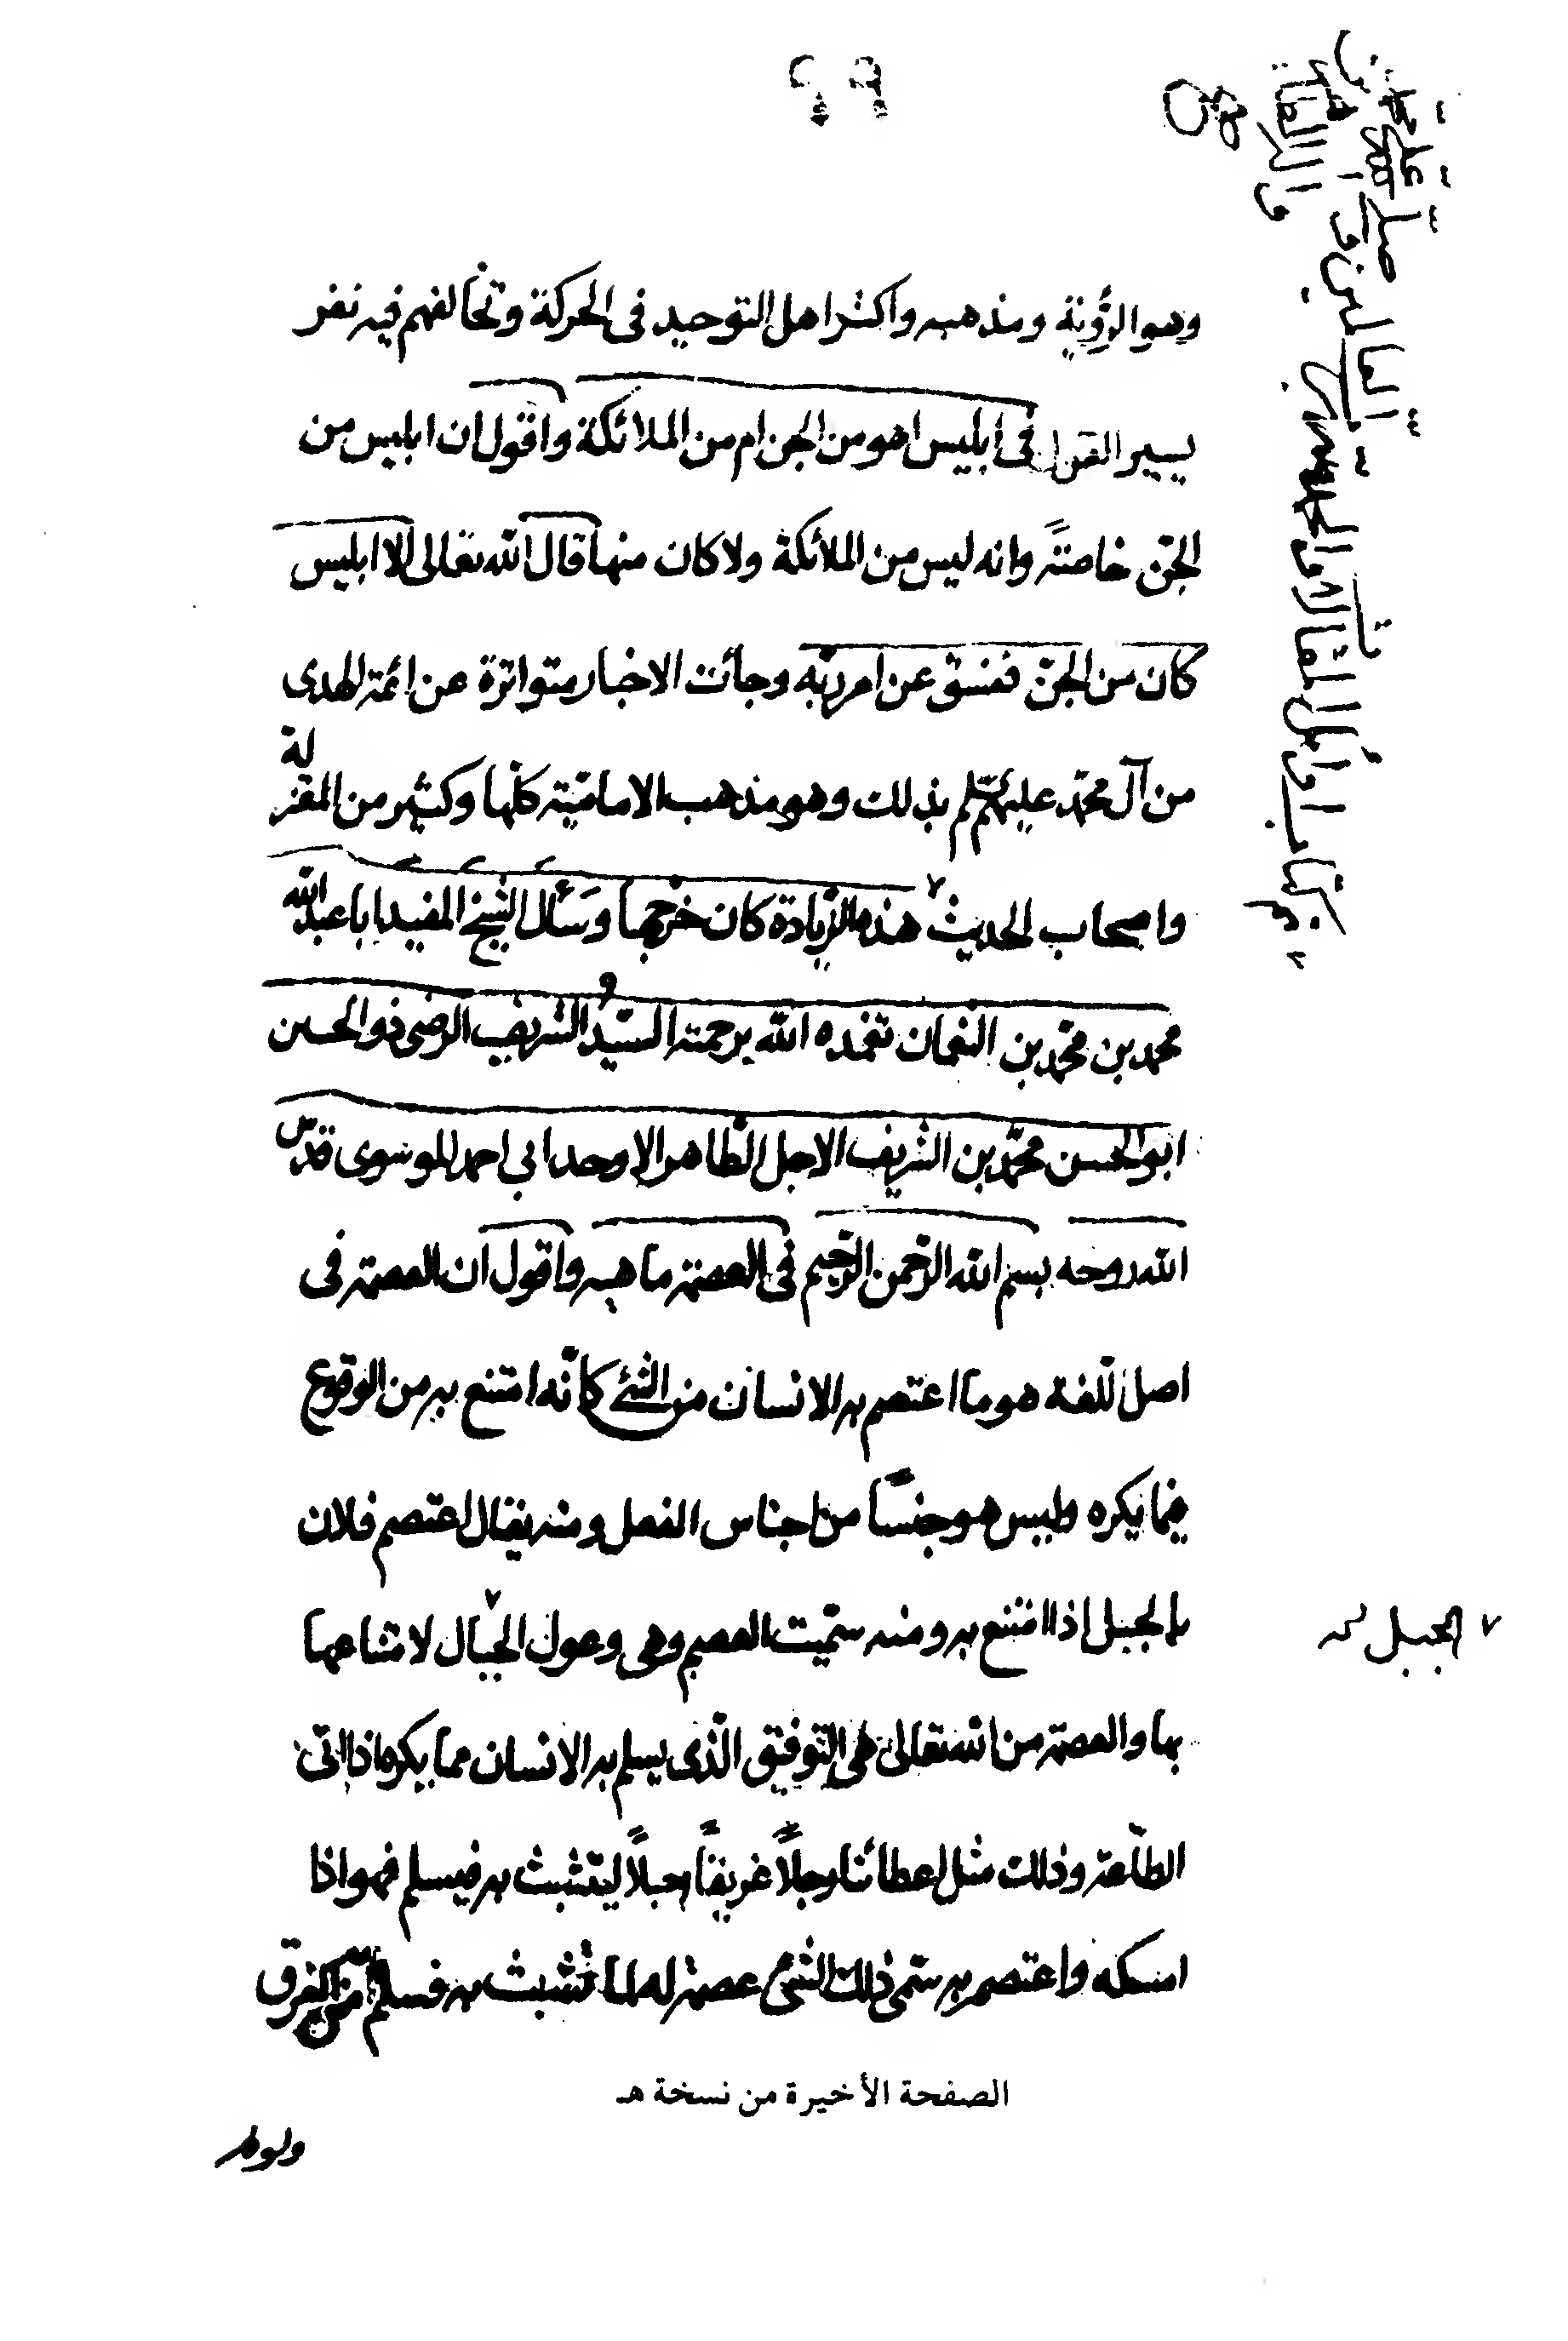 وهو الرؤية ومذهبه واكثر اهل التوحيد فى الحركة وتخالفهم فيه نفر
يسير القول فى ابليس اهو من الجن ام من الملائكة واقول ان ابليس من
الجنّ خاصةً وانه ليس من الملائكة ولا كان منها قال الله تعالى الا ابليس
كان من الجنّ ففسق عن امر ربّه وجائت الاخبار متواترة عن ائمة الهدى
من آل محمّد عليهم السّلم بذلك وهو مذهب الاماميّة كلّها وكثير من المعتزلة
واصحاب الحديث ٧ هذه الزيادة كان خرّجها وسَأل الشيخ المفيد ابا عبد الله
محمد بن محمّد بن النعمان تغمده الله برحمته السيّد الشريف الرضى ذو الحسبين
ابو الحسن محمّد بن الشريف الاجل الطّاهر الاوحد ابي احمد الموسوى قدّس
الله روحه بسم الله الرّحمن الرّحيم فى العصمة ما هيه واقول ان العصمة فى
اصل اللّغة هو ما اعتصم به الانسان من الشئ كانّه امتنع به من الوقوع
فيما يكره وليس هو جنسًا من اجناس الفعل ومنه يقال اعتصم فلان
بالجبل اذا امتنع به ومنه سمّيت العصم وهى وعول الجبال ٧ لامتناعها
٧ الجبل
بها والعصمة من الله تعالى هى التوفيق الّذى يسلم به الانسان مما يكره اذا اتى
الطّاعة وذلك مثل اعطائنا رجلاً غريقاً حبلاً ليتشبث به فيسلم فهو اذا
امسكه واعتصم به سمّى ذلك الشئ عصمة له لما تشبث به فسلم من الغرق
الصفحة الأخيرة من نسخة هـ